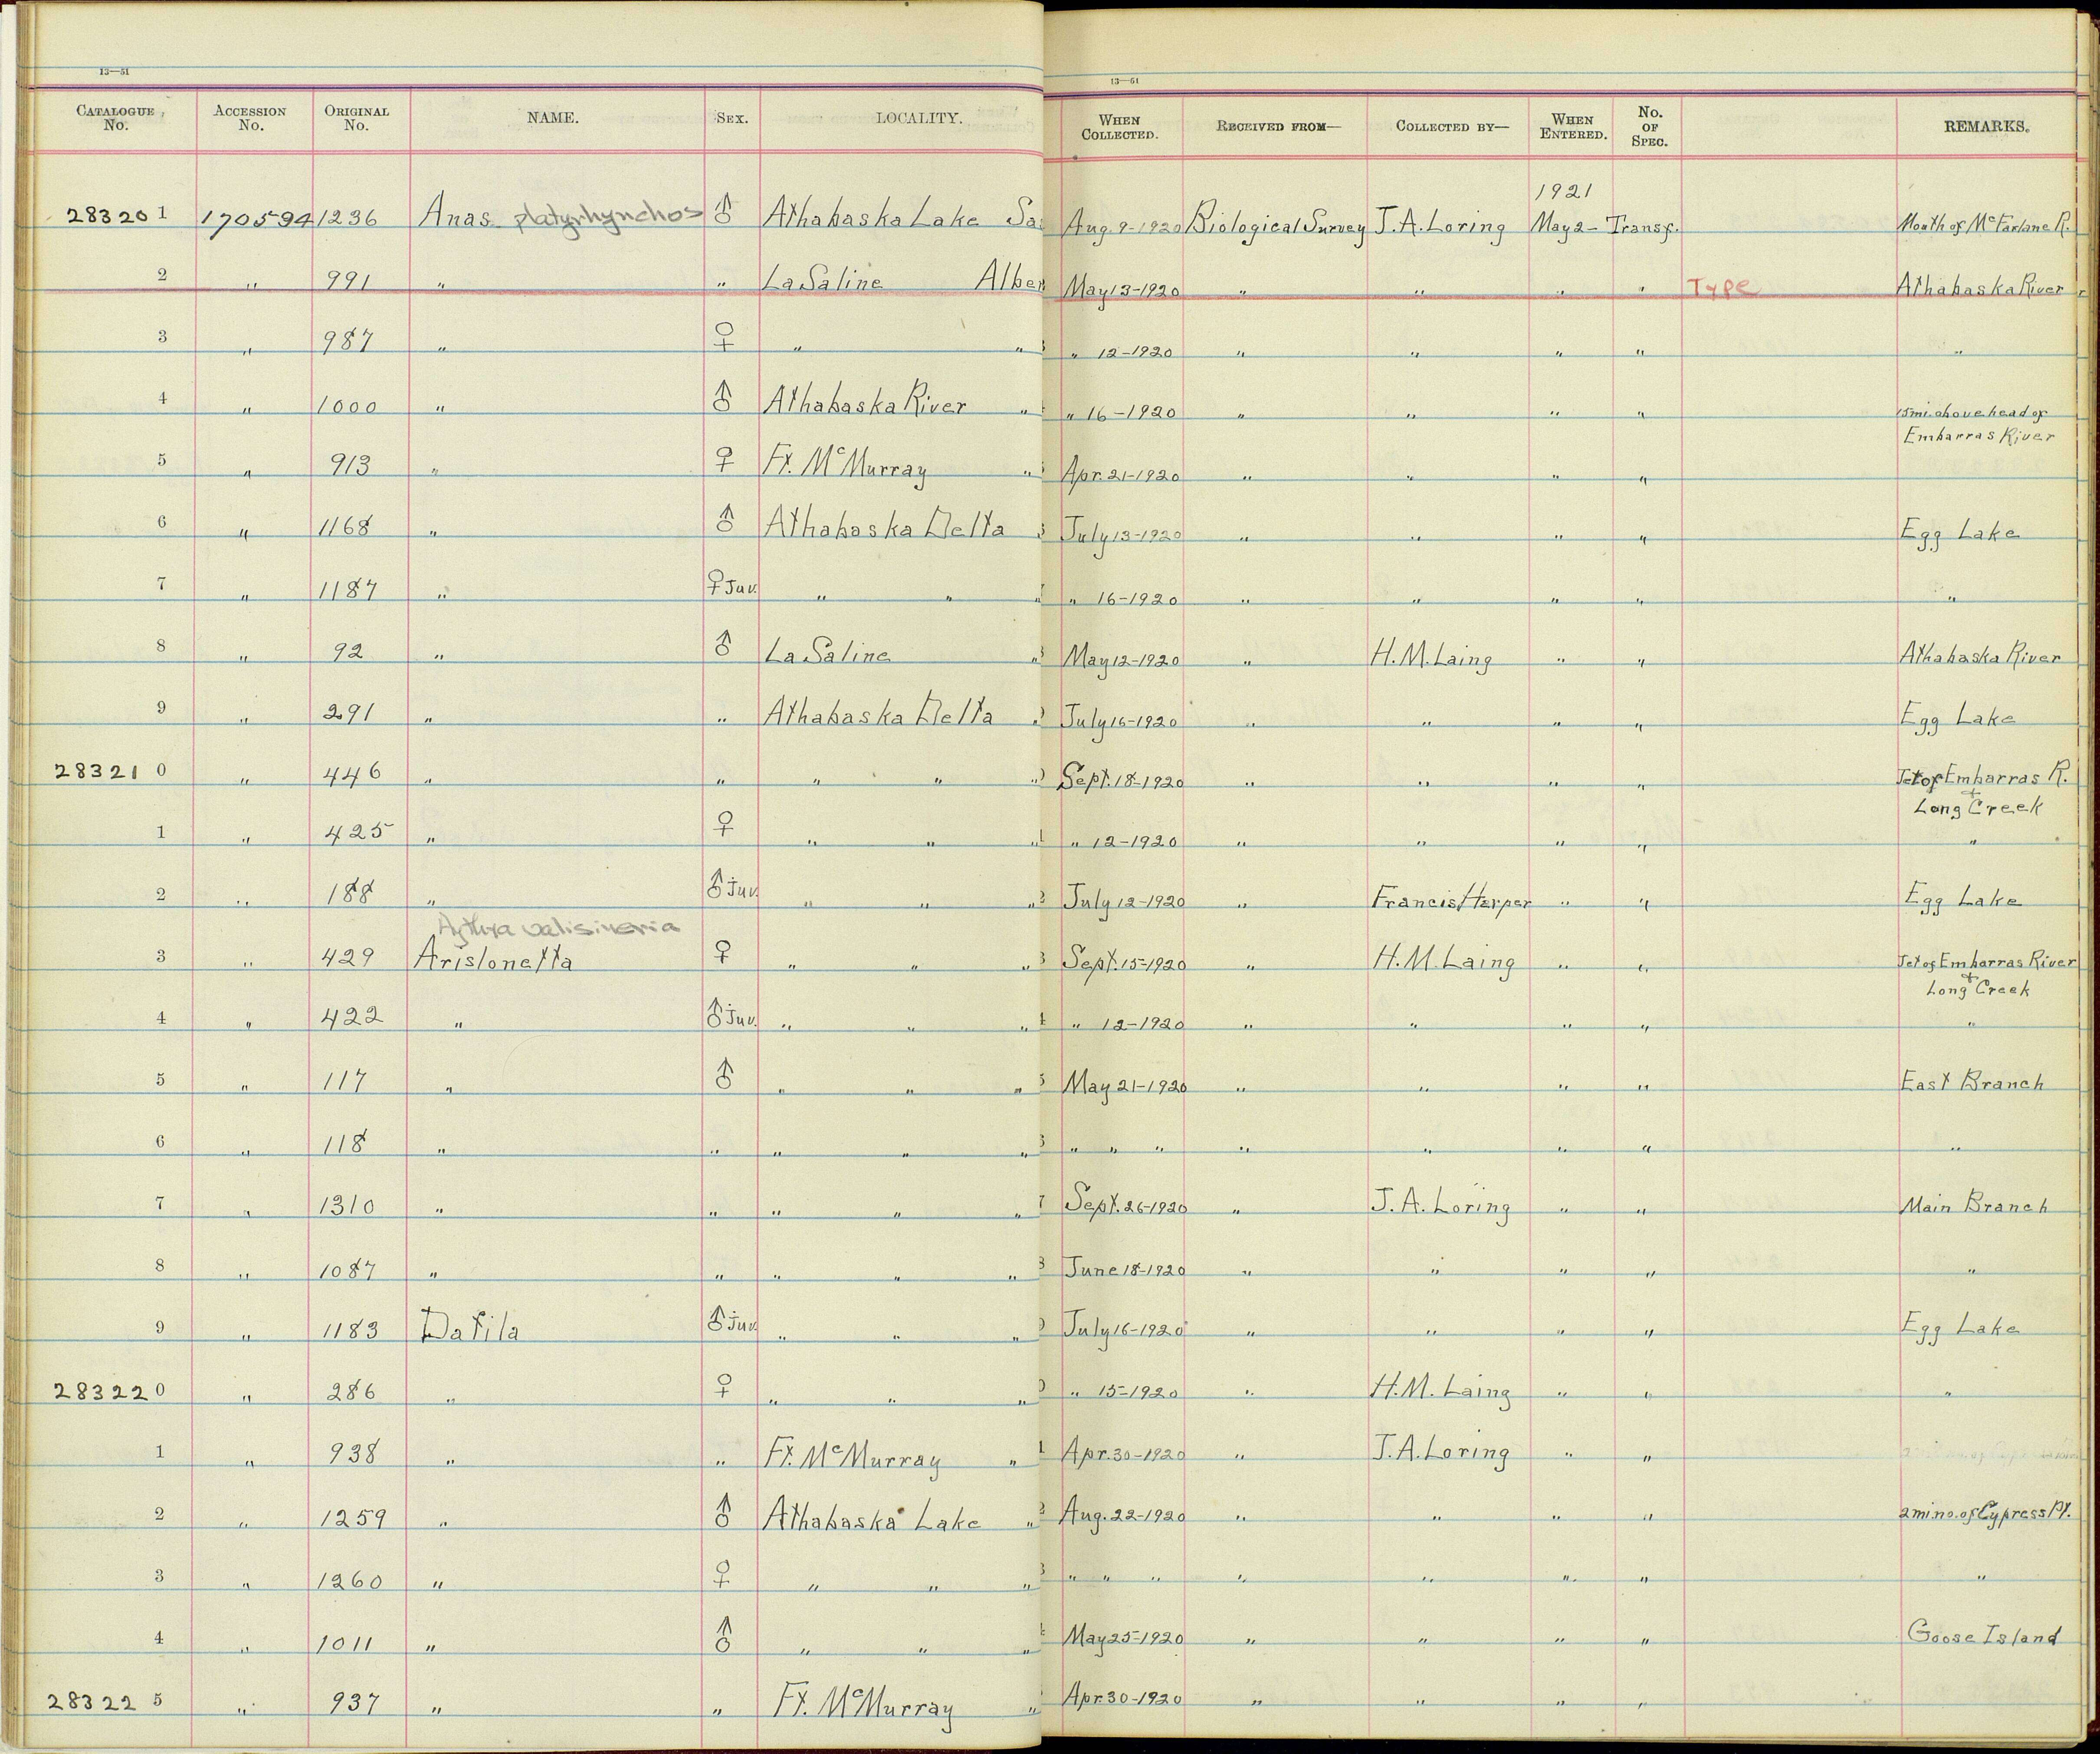 13—51
13—61
CATALOGUE No. ACCESSION No. ORIGINAL No. NAME. SEX. LOCALITY. WHEN COLLECTED. RECEIVED FROM— COLLECTED BY— WHEN ENTERED. No. OF SPEC. REMARKS.
1921
283201 170594 1236 Anas platyrhynchos ♂ Athabaska Lake Sa Aug. 9-1920 Biological Survey J.A. Loring May 2- Transf. Mouth of McFarlane R.
2 " 991 " " La Saline Alber May 13-1920 " " " " Type Athabaska River
3 " 987 " ♀ " " " 12-1920 " " " " "
4 " 1000 " ♂ Athabaska River " " 16-1920 " " " " 15mi. above head of
Embarras River
5 " 913 " ♀ Ft. McMurray " Apr. 21-1920 " " " "
6 " 1168 " ♂ Athabaska Delta July 13-1920 " " " " Egg Lake
7 " 1187 " ♀ Juv. " " " " 16-1920 " " " " "
8 " 92 " ♂ La Saline " May 12-1920 " H.M. Laing " " Athabaska River
9 " 291 " " Athabaska Delta " July 16-1920 " " " " Egg Lake
283210 " 446 " " " " " Sept. 18-1920 " " " " Jct of Embarras R.
+
Long Creek
1 " 425 " ♀ " " " " 12-1920 " " " " "
2 " 188 " ♂ Juv. " " " July 12-1920 " Francis Harper " " Egg Lake
Aythya valisineria
3 " 429 Aristonetta ♀ " " " Sept. 15-1920 " H.M. Laing " " Jct of Embarras River
+
Long Creek
4 " 422 " ♂ Juv. " " " " 12-1920 " " " " "
5 " 117 " ♂ " " " May 21-1920 " " " " East Branch
6 " 118 " " " " " " " " " " " " "
7 " 1310 " " " " " Sept. 26-1920 " J.A. Loring " " Main Branch
8 " 1087 " " " " " June 18-1920 " " " " "
9 " 1183 Dafila ♂ Juv. " " " July 16-1920 " " " " Egg Lake
283220 " 286 " ♀ " " " " 15-1920 " H.M. Laing " " "
1 " 938 " " Ft. McMurray " Apr. 30-1920 " J.A. Loring " "
2 " 1259 " ♂ Athabaska Lake " Aug. 22-1920 " " " " 2mi.no. of Cypress Pt.
3 " 1260 " ♀ " " " " " " " " " " "
4 " 1011 " ♂ " " " May 25-1920 " " " " Goose Island
283225 " 937 " " Ft. McMurray " Apr. 30-1920 " " " "